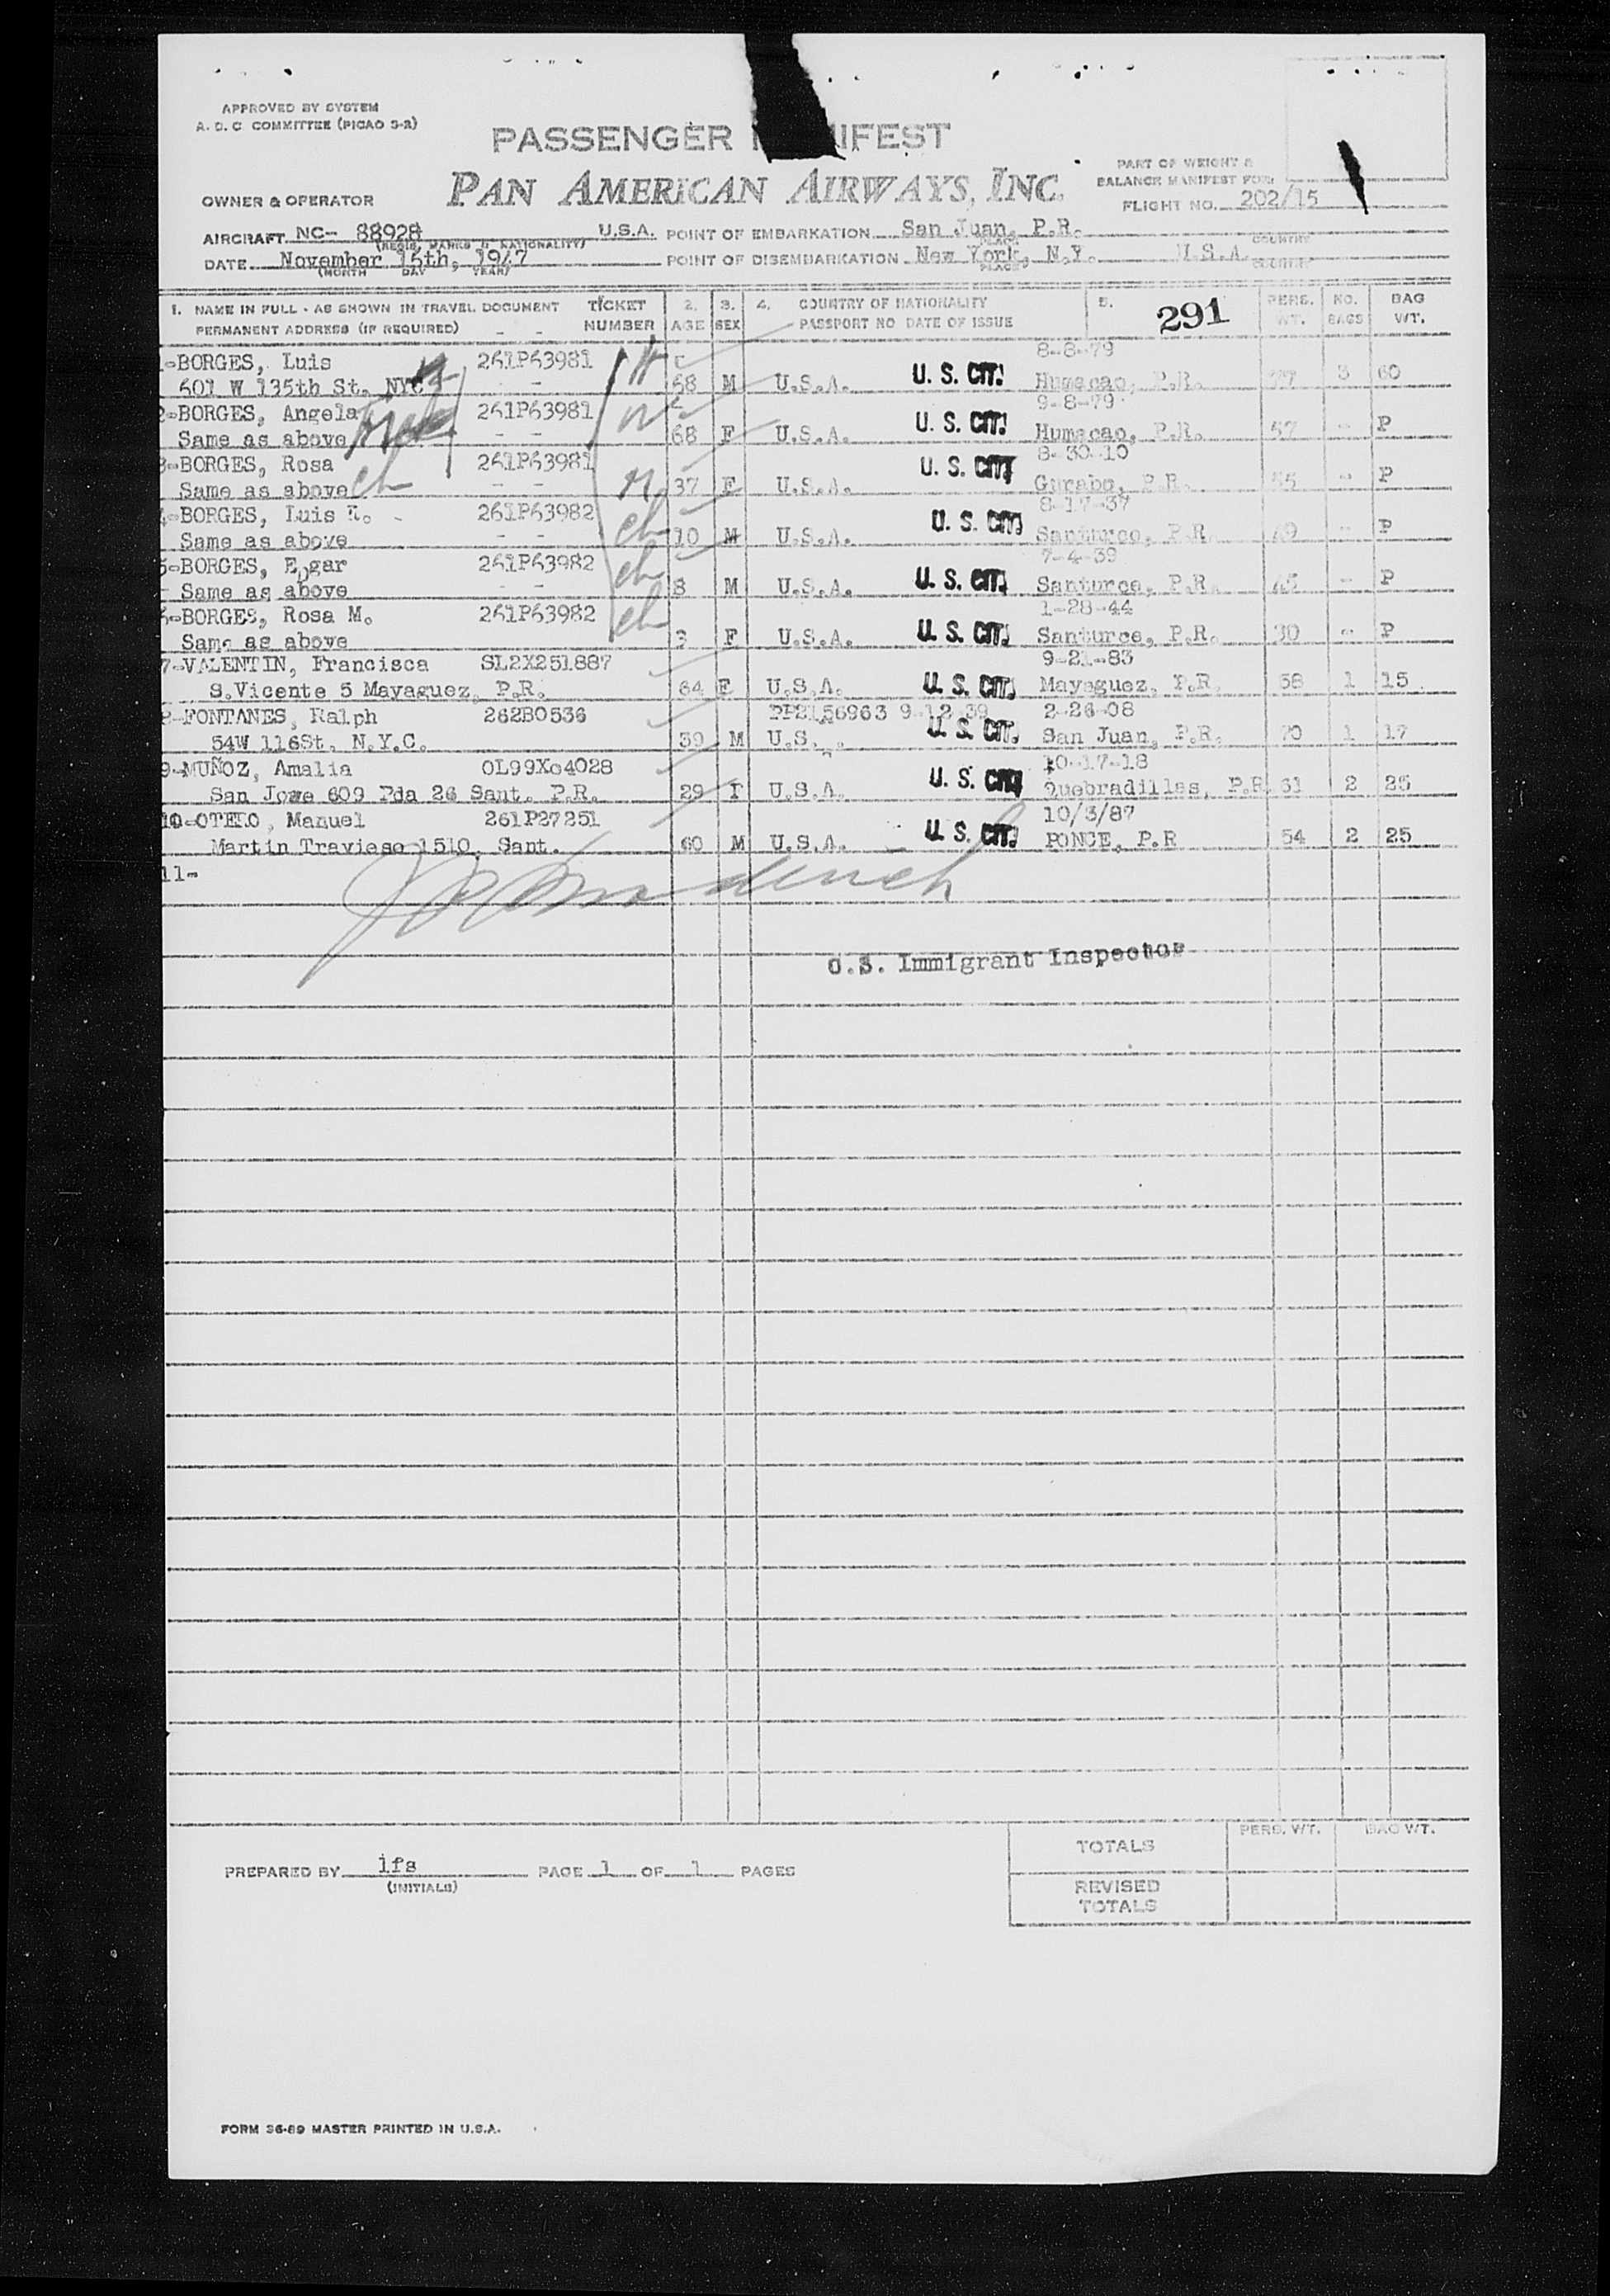 APPROVED BY SYSTEM
A. D. C COMMITTEE (PICAO S-2)
PASSENGER IFEST
PAN AMERICAN AIRWAYS, INC.
PART OF WEIGHT &
BALANCE MANIFEST FOR:
OWNER & OPERATOR
FLIGHT NO. 202/15
AIRCRAFT NC- 88928 U.S.A. POINT OF EMBARKATION San Juan, P.R.
(REGIS. MARKS & NATIONALITY) PLACE COUNTRY
DATE November 15th, 1947 POINT OF DISEMBARKATION New York, N.Y. U.S.A.
(MONTH DAY YEAR) PLACE COUNTRY
1. NAME IN FULL - AS SHOWN IN TRAVEL DOCUMENT TICKET 2. 3. 4. COUNTRY OF NATIONALITY 5. 291 PERS. NO. BAG
PERMANENT ADDRESS (IF REQUIRED) - - NUMBER AGE SEX PASSPORT NO DATE OF ISSUE WT. BAGS WT.
-BORGES, Luis 261P63981 8-8-79
601 W 135th St. NYC - - 68 M U.S.A. U. S. CIT. Humacao, P.R. 3 60
2-BORGES, Angela 261P63981 9-8-79
Same as above - - 68 F U.S.A. U. S. CIT. Humacao, P.R. 57 - P
3-BORGES, Rosa 261P63981 8-30-10
Same as above ch - - 37 F U.S.A. U. S. CIT. Gurabo, P.R. 55 - P
-BORGES, Luis R. 261P63982 8-17-37
Same as above - - ch 10 M U.S.A. U. S. CIT. Santurce, P.R. - P
5-BORGES, Edgar 261P63982 7-4-39
Same as above - - ch 8 M U.S.A. U. S. CIT. Santurce, P.R. - P
-BORGES, Rosa M. 261P63982 1-28-44
Same as above ch 3 F U.S.A. U. S. CIT. Santurce, P.R. 30 - P
7-VALENTIN, Francisca SL2X251887 9-21-83
S.Vicente 5 Mayaguez, P.R. 64 F U.S.A. U. S. CIT. Mayaguez, P.R. 58 1 15
8-FONTANES, Ralph 262B0536 PP2156963 9-12-39 2-26-08
54W 116St. N.Y.C. 39 M U.S. U. S. CIT. San Juan, P.R. 70 1 17
9-MUÑOZ, Amalia OL99Xo4028 10-17-18
San Jowe 609 Pda 26 Sant. P.R. 29 U.S.A. U. S. CIT. Quebradillas, P.R 61 2 25
10-OTERO, Manuel 261P27251 10/3/87
Martin Travieso 1510, Sant. 60 M U.S.A. U. S. CIT. PONCE, P.R 54 2 25
11-
U.S. Immigrant Inspector
PERS. WT. BAG WT.
TOTALS
PREPARED BY ifs PAGE 1 OF 1 PAGES
(INITIALS)
REVISED
TOTALS
FORM 36-89 MASTER PRINTED IN U.S.A.